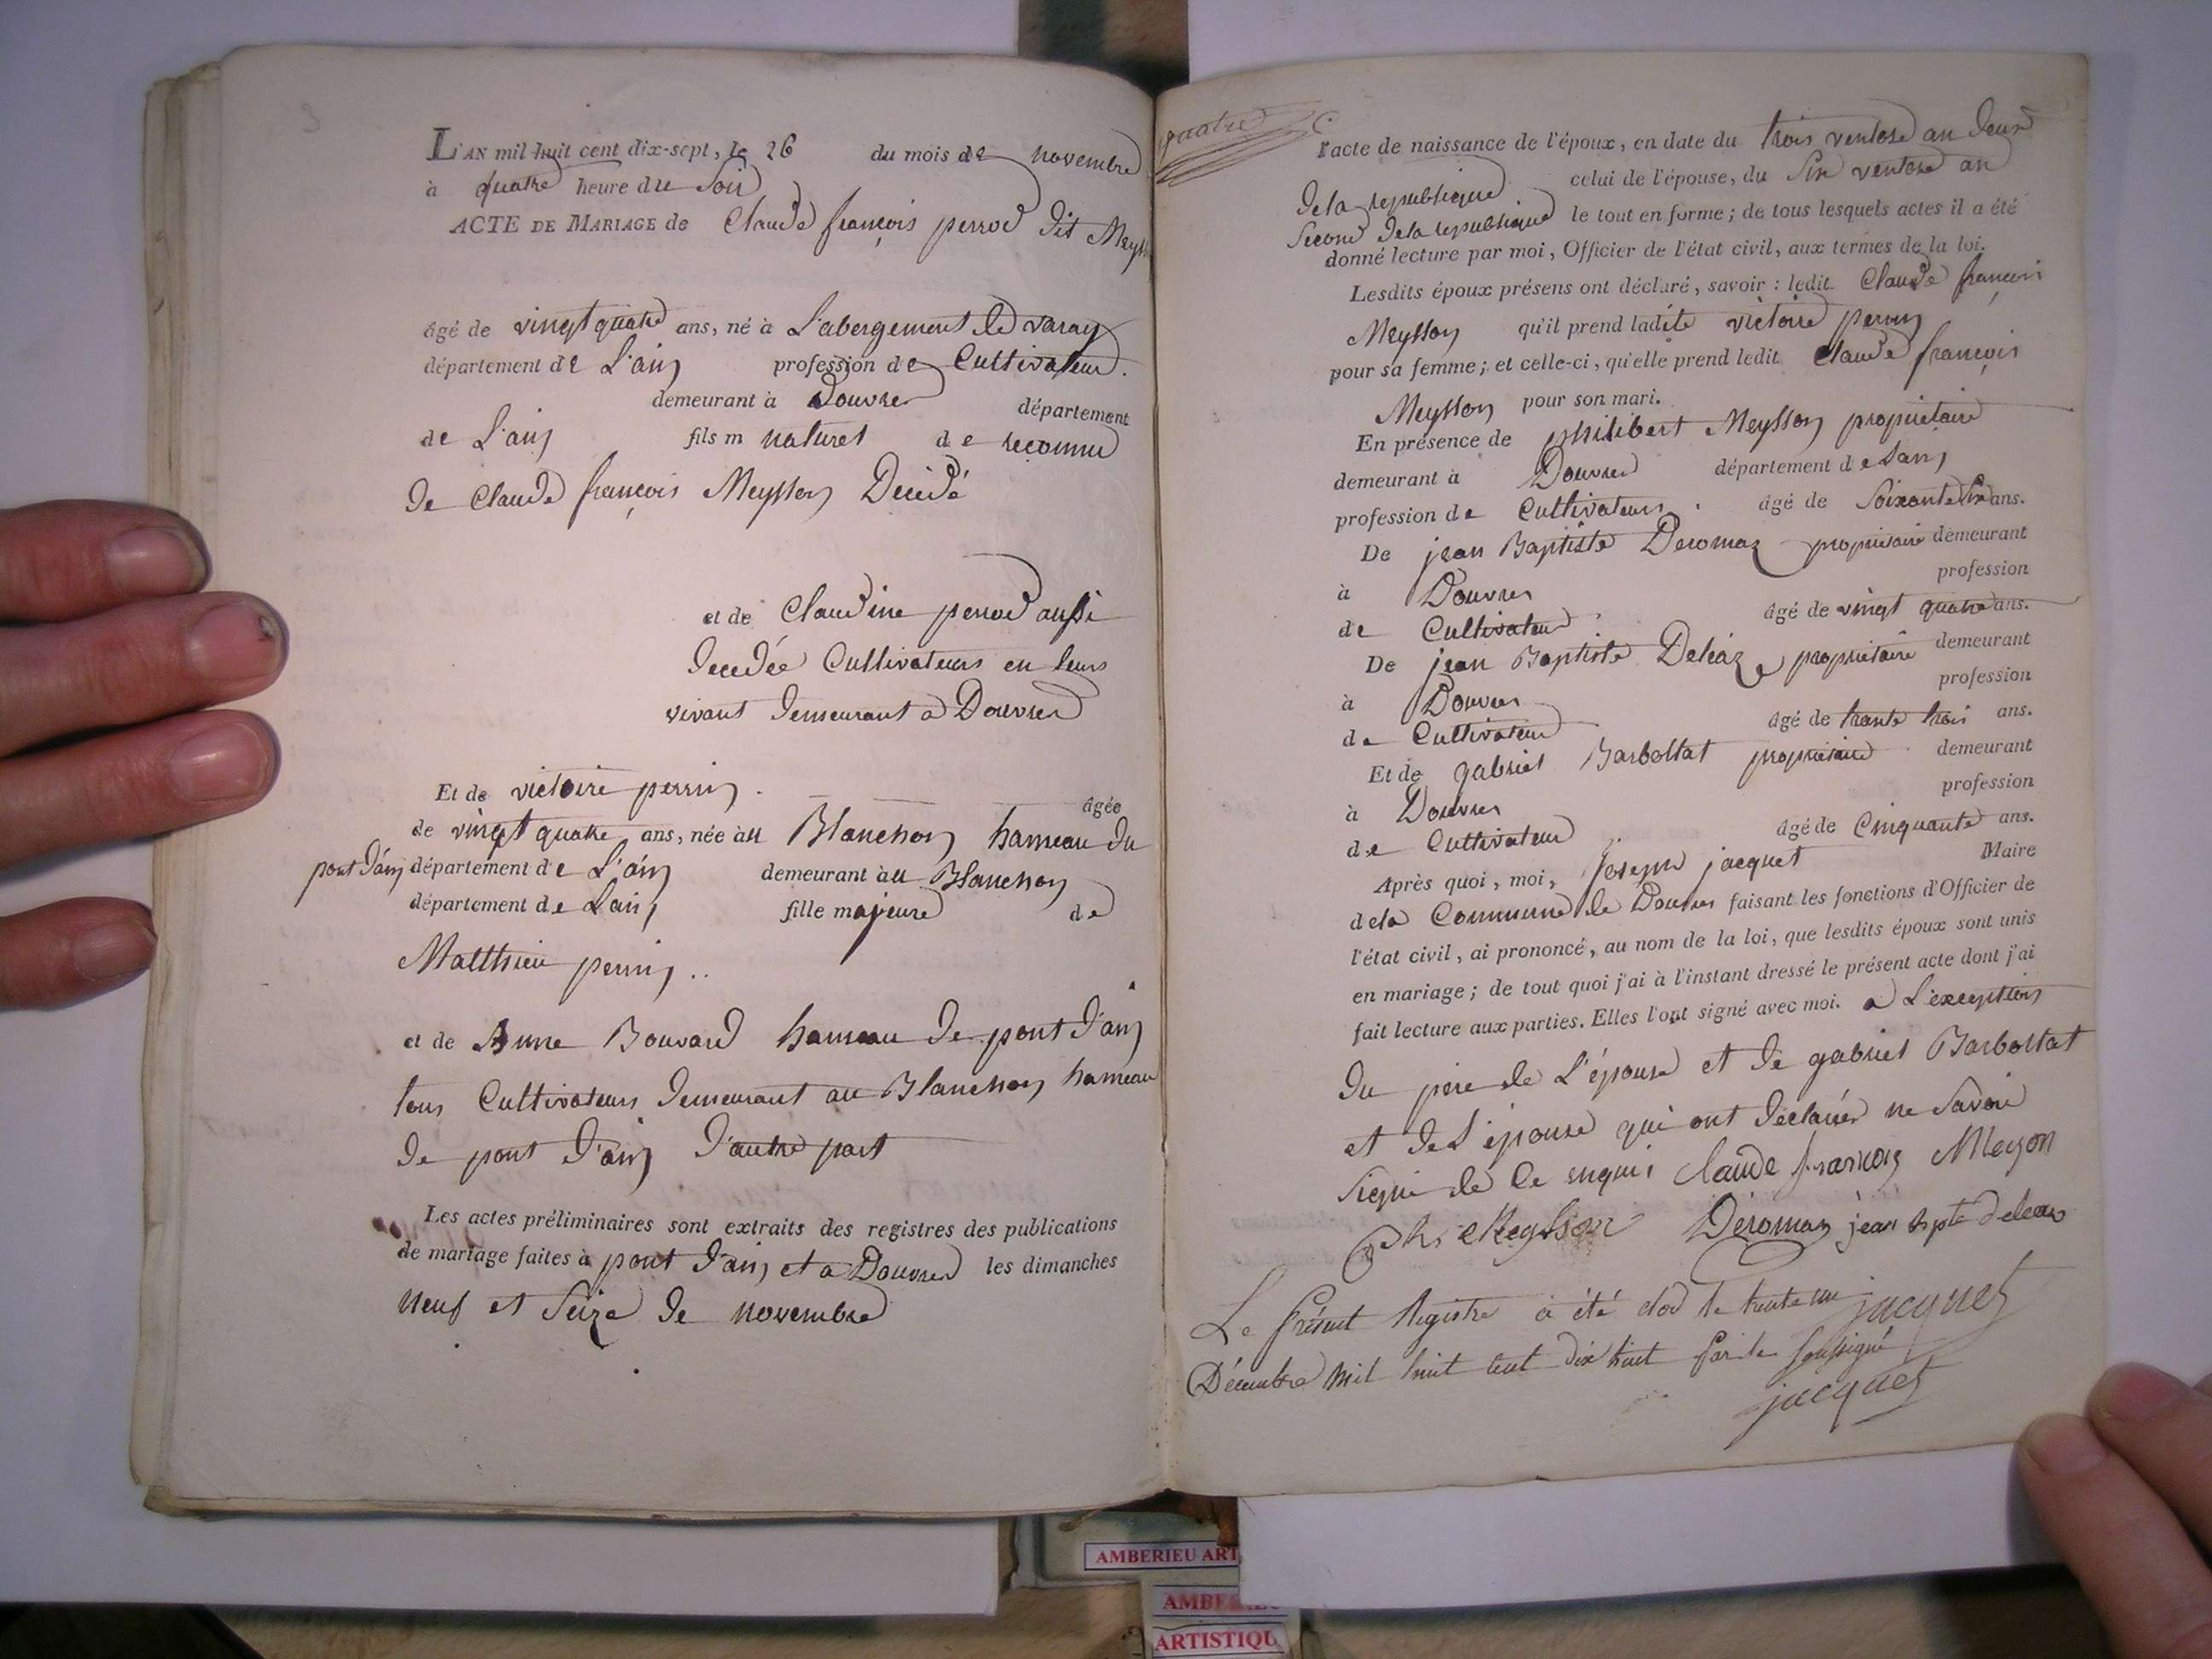 3
L'AN mil huit cent dix-sept, le 26 du mois de novembre
à quatre heure du Soir
ACTE DE MARIAGE de Claude françois perrod dit Meysson
âgé de vingt quatre ans, né à L'abergement de varay
département de L'ain profession de Cultivateur.
demeurant à Douvres département
de L'ain fils m naturel de reconnu
de Claude françois Meysson Décédé
et de Claudine perrod aussi
decedée Cultivateurs en leurs
vivant demeurant a Douvres
Et de victoire perrin. âgée
de vingt quatre ans, née au Blanchon hameau du
pont d'ain département de L'ain demeurant au Blanchon
département de L'ain fille majeure de
Matthieu perrin..
et de Anne Bouvard hameau de pont d'ain
tous Cultivateurs demeurant au Blanchon hameau
de pont d'ain d'autre part
Les actes préliminaires sont extraits des registres des publications
de mariage faites à pont d'ain et a Douvres les dimanches
neuf et Seize de novembre
quatre
l'acte de naissance de l'époux, en date du trois ventose an deux
de la republique celui de l'épouse, du Six ventose an
Second de la republique le tout en forme; de tous lesquels actes il a été
donné lecture par moi, Officier de l'état civil, aux termes de la loi.
Lesdits époux présens ont déclaré, savoir: ledit Claude françois
Meysson qu'il prend ladite victoire perrin
pour sa femme; et celle-ci, qu'elle prend ledit Claude françois
Meysson pour son mari.
En présence de philibert Meysson propriétaire
demeurant à Douvres département de L'ain
profession de Cultivateurs. âgé de Soixante Six ans.
De jean Baptiste Deromaz propriétaire demeurant
à Douvres profession
de Cultivateur âgé de vingt quatre ans.
De jean Baptiste Deléaz propriétaire demeurant
à Douvres profession
de Cultivateur âgé de trante trois ans.
Et de gabriel Barbollat propriétaire demeurant
à Douvres profession
de Cultivateur âgé de Cinquante ans.
Après quoi, moi, Joseph jacquet Maire
de la Commune de Douvres faisant les fonctions d'Officier de
l'état civil, ai prononcé, au nom de la loi, que lesdits époux sont unis
en mariage; de tout quoi j'ai à l'instant dressé le présent acte dont j'ai
fait lecture aux parties. Elles l'ont signé avec moi. a L'exception
du pere de L'épouse et de gabriel Barbollat
et de L'épouse qui ont declarés ne Savoir
Signé de ce enquis Claude françois Meyson
Phi Meysson Déromaz jean bpte deleaz
Le présent Registre a été clos le trente un jacquet
Décembre mil huit cent dix huit par le soussigné
jacquet
AMBERIEU ART
AMBERIEU
ARTISTIQU